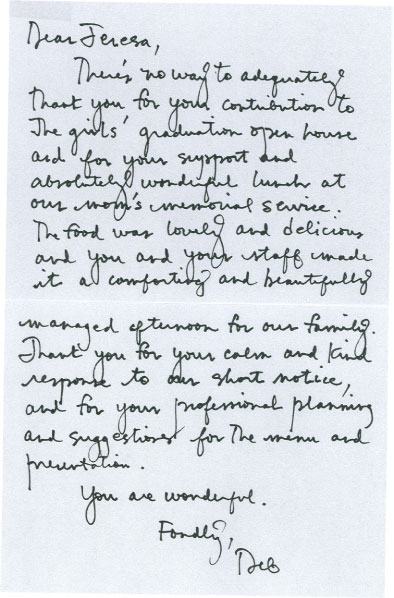 Dear Teresa,
There's no way to adequately
thank you for your contribution to
the girls' graduation open house
and for your support and
absolutely wonderful lunch at
our mom's memorial service.
The food was lovely and delicious
and you and your staff made
it a comforting and beautifully
managed afternoon for our family.
Thank you for your calm and kind
response to our short notice,
and for your professional planning
and suggestions for the menu and
presentation.
You are wonderful.
Fondly,
Deb